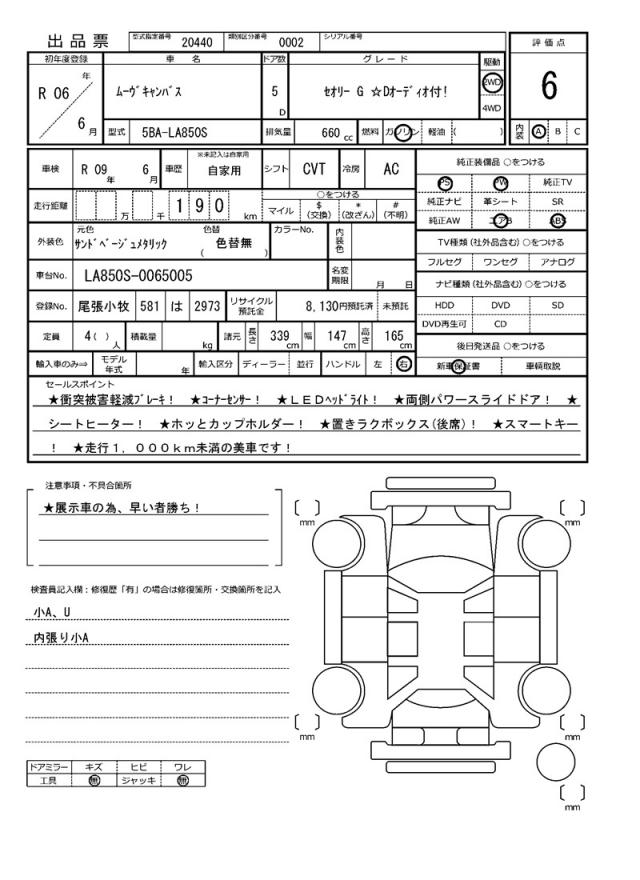 出品票 型式指定番号 20440 類別区分番号 0002 シリアル番号
評価点
6
内装 A B C
初年度登録 車名 ドア数 グレード 駆動
R 06 年 6 月 ムーヴキャンバス 5 D セオリー G ☆Dオーディオ付! 2WD 4WD
型式 5BA-LA850S 排気量 660 cc 燃料 ガソリン 軽油 ( )
車検 R 09 年 6 月 車歴 ※未記入は自家用 自家用 シフト CVT 冷房 AC
走行距離 万 千 1 9 0 km ○をつける
マイル $ (交換) * (改ざん) # (不明)
外装色 元色 サンドベージュメタリック 色替 ( 色替無 ) カラーNo. 内装色
車台No. LA850S-0065005 名変期限 月 日
登録No. 尾張小牧 581 は 2973 リサイクル預託金 8,130円預託済 未預託
定員 4( ) 人 積載量 kg 諸元 長さ 339 cm 幅 147 cm 高さ 165 cm
輸入車のみ⇒ モデル年式 年 輸入区分 ディーラー 並行 ハンドル 左 右
純正装備品 ○をつける
PS PW 純正TV
純正ナビ 革シート SR
純正AW エアB ABS
TV種類 (社外品含む) ○をつける
フルセグ ワンセグ アナログ
ナビ種類 (社外品含む) ○をつける
HDD DVD SD
DVD再生可 CD
後日発送品 ○をつける
新車保証書 車輌取説
セールスポイント
★衝突被害軽減ブレーキ! ★コーナーセンサー! ★LEDヘッドライト! ★両側パワースライドドア! ★
シートヒーター! ★ホッとカップホルダー! ★置きラクボックス(後席)! ★スマートキー
! ★走行1,000km未満の美車です!
注意事項・不具合箇所
★展示車の為、早い者勝ち!
検査員記入欄:修復歴「有」の場合は修復箇所・交換箇所を記入
小A、U
内張り小A
ドアミラー キズ ヒビ ワレ
工具 無 ジャッキ 無
[ ] mm
[ ] mm
[ ] mm
[ ] mm
[ ] mm